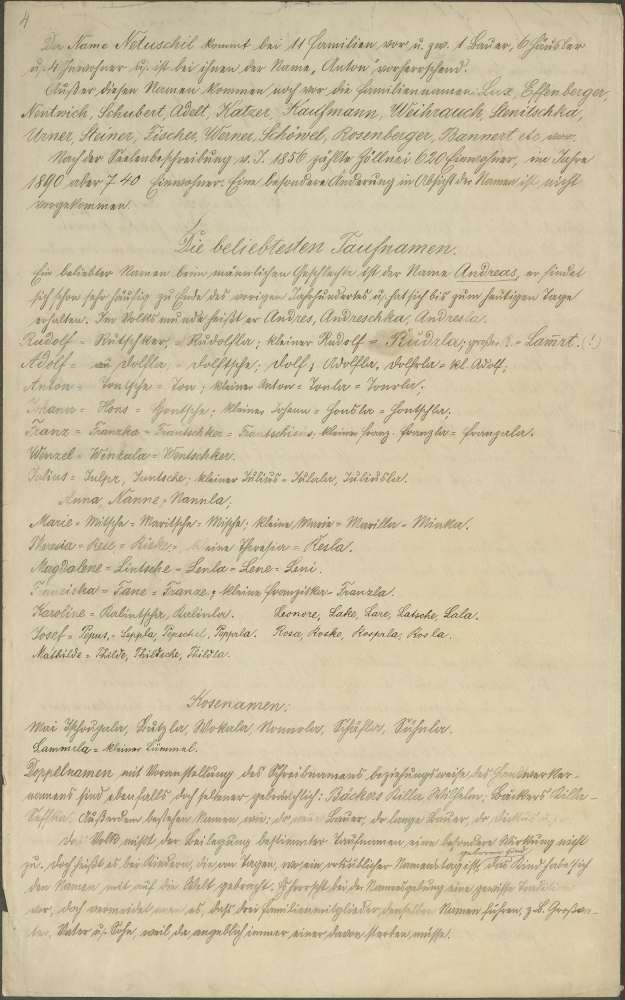 4
Der Name Netuschil kommt bei 11 Familien vor, u. zw. 1 Bauer, 6 Häusler
u. 4 Inwohner u. ist bei ihnen der Name „Anton" vorherrschend.
Außer diesen Namen kommen noch vor die Familiennamen: Lux, Effenberger,
Nentwich, Schubert, Adelt, Katzer, Kaufmann, Weihrauch, Stenitschka,
Urner, Steiner, Fischer, Werner, Schöwel, Rosenberger, Bannert etc. vor.
Nach der Seelenbeschreibung v. J. 1856 zählte Göllnei 620 Einwohner, im Jahre
1890 aber 740 Einwohner. Eine besondere Änderung in Absicht der Namen ist nicht
vorgekommen.
Die beliebtesten Taufnamen.
Ein beliebter Namen beim männlichen Geschlechte ist der Name Andreas, er findet
sich schon sehr häufig zu Ende des vorigen Jahrhundertes u. hat sich bis zum heutigen Tage
erhalten. Im Volksmunde heißt er Andres, Andreschka, Andresla.
Rudolf = Rutschker, = Rudolfla; kleiner Rudolf = Rudzla; großer = Lammt. (!)
Adolf = Dolfla = Dolftsche; Dolf, Adolfla, Dolfela = kl. Adolf;
Anton = Tontsche = Ton; kleiner Anton = Tonla = Tonrla;
Johann = Hons = Hontsche; kleiner Johann = Honsla = Hontschla;
Franz = Franzka = Frantschker = kleiner Franz. Franzla = Franzala.
Wenzel = Wenkala = Wentschker.
Julius = Julper, Juntsche; kleiner Julius = Julala, Juliusla.
Anna, Nanne, Nannla;
Marie = Mitsche = Maritsche = Mische; kleine Marie = Marilla = Minka.
Theresia = Resl = kleine Theresia = Resla.
Magdalene = Lintsche = Lenla = Lene = Leni.
Franziska = Fane = Franze; kleine Franziska = Franzla.
Karoline = Kalintscha, Kalinla. Leonore, Lake, Lare, Latsche, Lala.
Josef = Pepus, = Seppla, Pepschel, Peppala. Rosa, Roske, Rosala, Rosla.
Mathilde = Thilde, Thildsche, Thildla.
Kosenamen:
Mai Butzla, Mokala, Nonnala, Schufla, Söhnla.
Lammela = kleiner Lümmel.
Doppelnamen mit Voranstellung des Schreibnamens beziehungsweise des Handwerker-
namens sind ebenfalls doch seltener gebräuchlich: Bäckers Willa Wilhelm, Bäckers Willa-
Seffla. Außerdem bestehen Namen wie: der Bauer, der lange Bauer, der
Das Volk mißt der Beilegung bestimmter Taufnamen eine besondere Wirkung nicht
zu. Doch heißt es bei Kindern, die an Tagen, wo ein ortsüblicher Namenstag ist, geboren sind, das Kind habe sich
den Namen mit auf die Welt gebracht. Es herrscht bei der Namengebung eine gewisse Tradition
vor, doch vermeidet man es, daß drei Familienmitglieder denselben Namen führen, z. B. Großva-
ter, Vater u. Sohn, weil da angeblich immer einer davon sterben müsse.